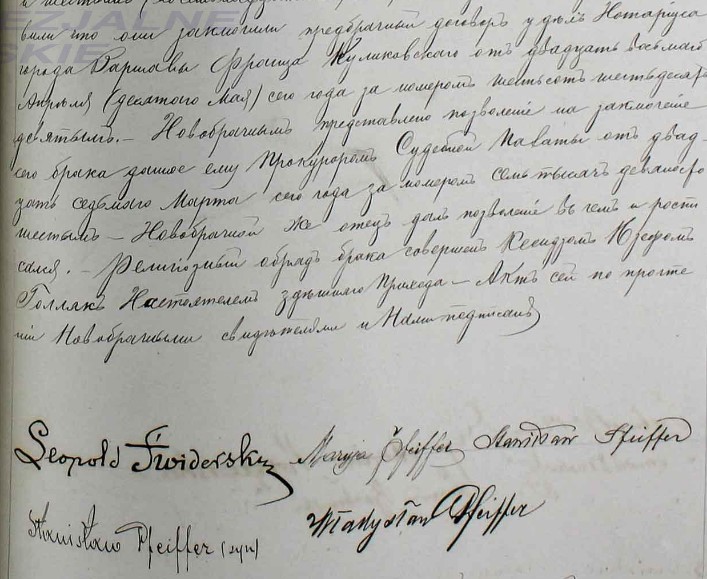 EZJALNE
SKIE
были что они заключили предбрачный договоръ у дѣлъ Нотаріуса
города Варшавы Франца Жуликовскаго отъ двадцать восьмаго
Апрѣля (десятаго Мая) сего года за номеромъ шестьсотъ шестьдесятъ
девятымъ. — Новобрачнымъ представлено позволеніе на заключеніе
сего брака данное ему Прокуроромъ Судебной Палаты отъ двад-
цать седьмаго Марта сего года за номеромъ семь тысячъ девяносто
шестымъ — Новобрачной же отецъ далъ позволеніе въ семъ и росписался. — Религіозный обрядъ брака совершенъ Ксендзомъ Юзефомъ
Голлякъ Настоятелемъ здѣшняго Прихода — Актъ сей по прочте
ніи Новобрачными свидѣтелями и Нами подписанъ
Leopold Świderski Maryja Pfeiffer Stanisław Pfeiffer
Stanisław Pfeiffer (syn) Władysław Pfeiffer